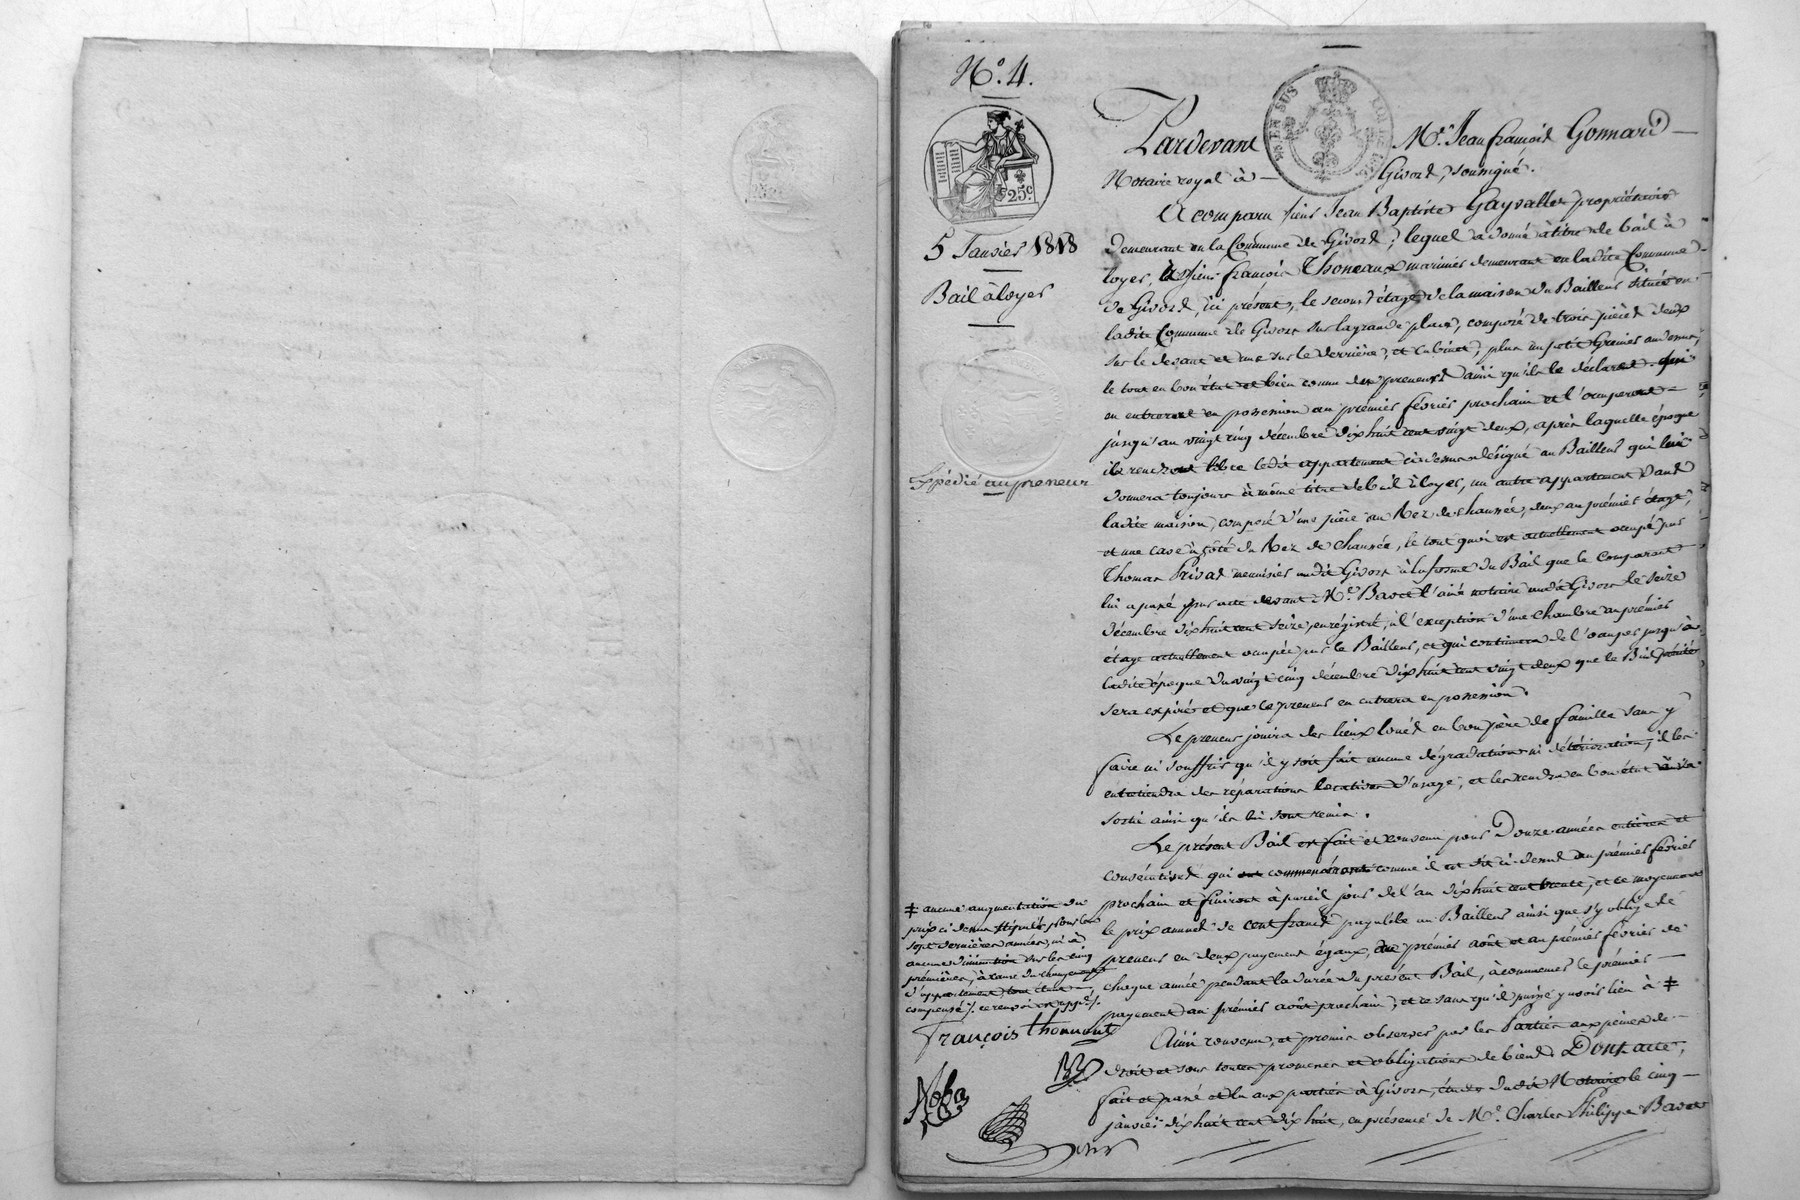 N.º 4.
25c.
5 Janvier 1818
Bail à loyer
Expédié au preneur
Pardevant Me. Jean françois Gonnard
Notaire royal à Givord, soussigné.
A comparu sieur Jean Baptiste Gayvallet propriétaire
demeurant en la Commune de Givord ; lequel a donné à titre de bail à
loyer, à sieur françois Thoneaux marinier demeurant en ladite Commune
de Givord, ici présent, le second étage de la maison du Bailleur située en
ladite Commune de Givors sur la grande place, composé de trois pièces deux
sur le devant et une sur le derrière, et Cabinet, plus un petit Grenier au dessus,
le tout en bon état et bien connu des preneurs ainsi qu'ils le déclarent. qui
en entreront en possession au prémier février prochain et l'occuperont
jusqu'au vingt cinq décembre dix huit cent vingt deux, après laquelle époque
ils rendront libre ledit appartement ci dessus désigné au Bailleur qui lui
donnera toujours à même titre de bail à loyer, un autre appartement dans
ladite maison, composé d'une pièce au Rez de chaussée, deux au prémier étage,
et une cave à côté du Rez de chaussée, le tout quoi est actuellement occupé par
Thomas Privat menuisier audit Givors à la forme du Bail que le Comparant
lui a passé par acte devant Me. Bavet l'ainé notaire audit Givors le seize
décembre dix huit cent seize, enrégistré, à l'exception d'une chambre au prémier
étage actuellement occupée par le Bailleur, et qui continuera de l'occuper jusqu'à
ladite époque du vingt cinq décembre dix huit cent vingt deux que le Bail précité
sera expiré et que le preneur en entrera en possession.
Le preneur jouira des lieux loués en bon père de famille sans y
faire ni souffrir qu'il y soit fait aucune dégradation ni déterioration, il les
entretiendra des réparations locatives d'usage, et les rendra en bon état à sa
sortie ainsi qu'ils lui sont remis.
Le présent Bail est fait et convenu pour Douze années entières et
consécutives qui commenceront comme il est dit ci-dessus au prémier février
prochain et finiront à pareil jour de l'an dix huit cent trente, et ce moyennant
le prix annuel de cent francs payable au Bailleur ainsi que s'y oblige le
preneur en deux payement égaux, au prémier août et au prémier février de
chaque année pendant la durée du présent Bail, à commencer le prémier
payement au prémier août prochain, et ce sans qu'il puisse y avoir lieu à ‡
‡ aucune augmentation du
prix ci dessus stipulé pour les
sept dernières années, ni à
aucune diminution sur les cinq
prémières, à cause du changement
d'appartement, tout étant
compensé /. ce renvoi est appr. /.
françois thonnant
Ainsi convenu, et promis observer par les Parties aux peines de
droit et sous toutes promesses et obligations de biens Dont acte,
fait et passé et lu aux parties à Givors, étude dudit Notaire le cinq
janvier dix huit cent dix huit, en présence de Mr. Charles Philippe Bavet